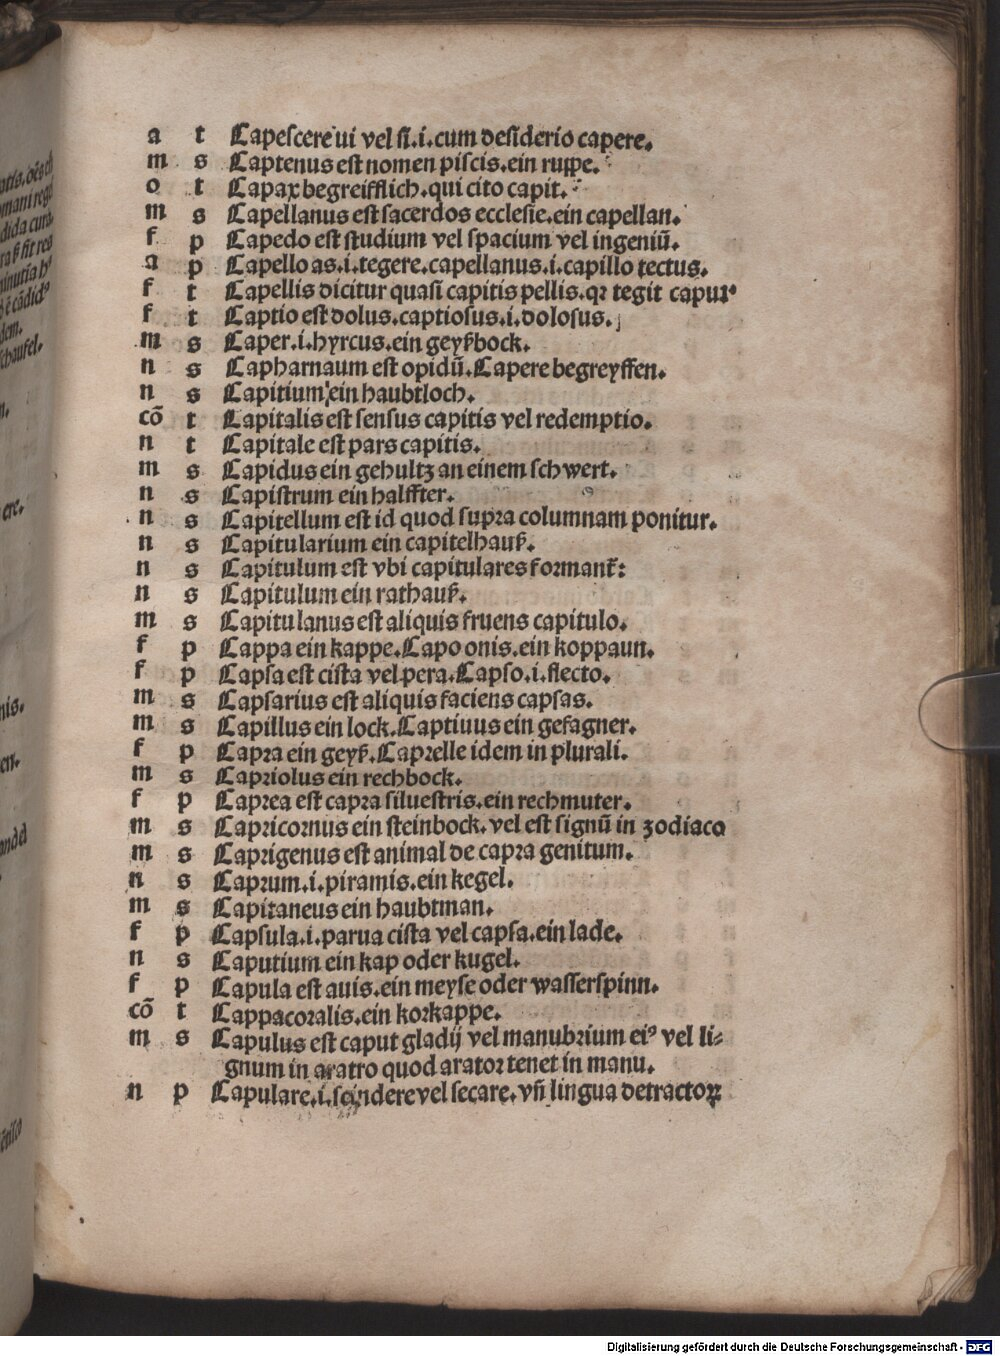 a t Capescere ui vel si.i.cum desiderio capere.
m s Captenus est nomen piscis.ein ruppe.
o t Capax begreifflich.qui cito capit.
m s Capellanus est sacerdos ecclesie.ein capellan.
f p Capedo est studium vel spacium vel ingeniū.
a p Capello as.i.tegere.capellanus.i.capillo tectus.
f t Capellis dicitur quasi capitis pellis.qꝛ tegit caputꝰ
f t Captio est dolus.captiosus.i.dolosus.
m s Caper.i.hyrcus.ein geyßbock.
n s Capharnaum est opidū.Capere begreyffen.
n s Capitium ein haubtloch.
cō t Capitalis est sensus capitis vel redemptio.
n t Capitale est pars capitis.
m s Capidus ein gehultz an einem schwert.
n s Capistrum ein halffter.
n s Capitellum est id quod supra columnam ponitur.
n s Capitularium ein capitelhauß.
n s Capitulum est vbi capitulares formant̄:
n s Capitulum ein rathauß.
m s Capitulanus est aliquis fruens capitulo.
f p Cappa ein kappe.Capo onis.ein koppaun.
f p Capsa est cista vel pera.Capso.i.flecto.
m s Capsarius est aliquis faciens capsas.
m s Capillus ein lock.Captiuus ein gefagner.
f p Capra ein geyß.Caprelle idem in plurali.
m s Capriolus ein rechbock.
f p Caprea est capra siluestris.ein rechmuter.
m s Capricornus ein steinbock.vel est signū in zodiaco
m s Caprigenus est animal de capra genitum.
n s Caprum.i.piramis.ein kegel.
m s Capitaneus ein haubtman.
f p Capsula.i.parua cista vel capsa.ein lade.
n s Caputium ein kap oder kugel.
f p Capula est auis.ein meyse oder wasserspinn.
cō t Cappacoralis.ein korkappe.
m s Capulus est caput gladij vel manubrium eiꝰ vel li-
gnum in aratro quod arator tenet in manu.
n p Capulare.i.scindere vel secare.vn̄ lingua detractoꝝ
Digitalisierung gefördert durch die Deutsche Forschungsgemeinschaft - DFG